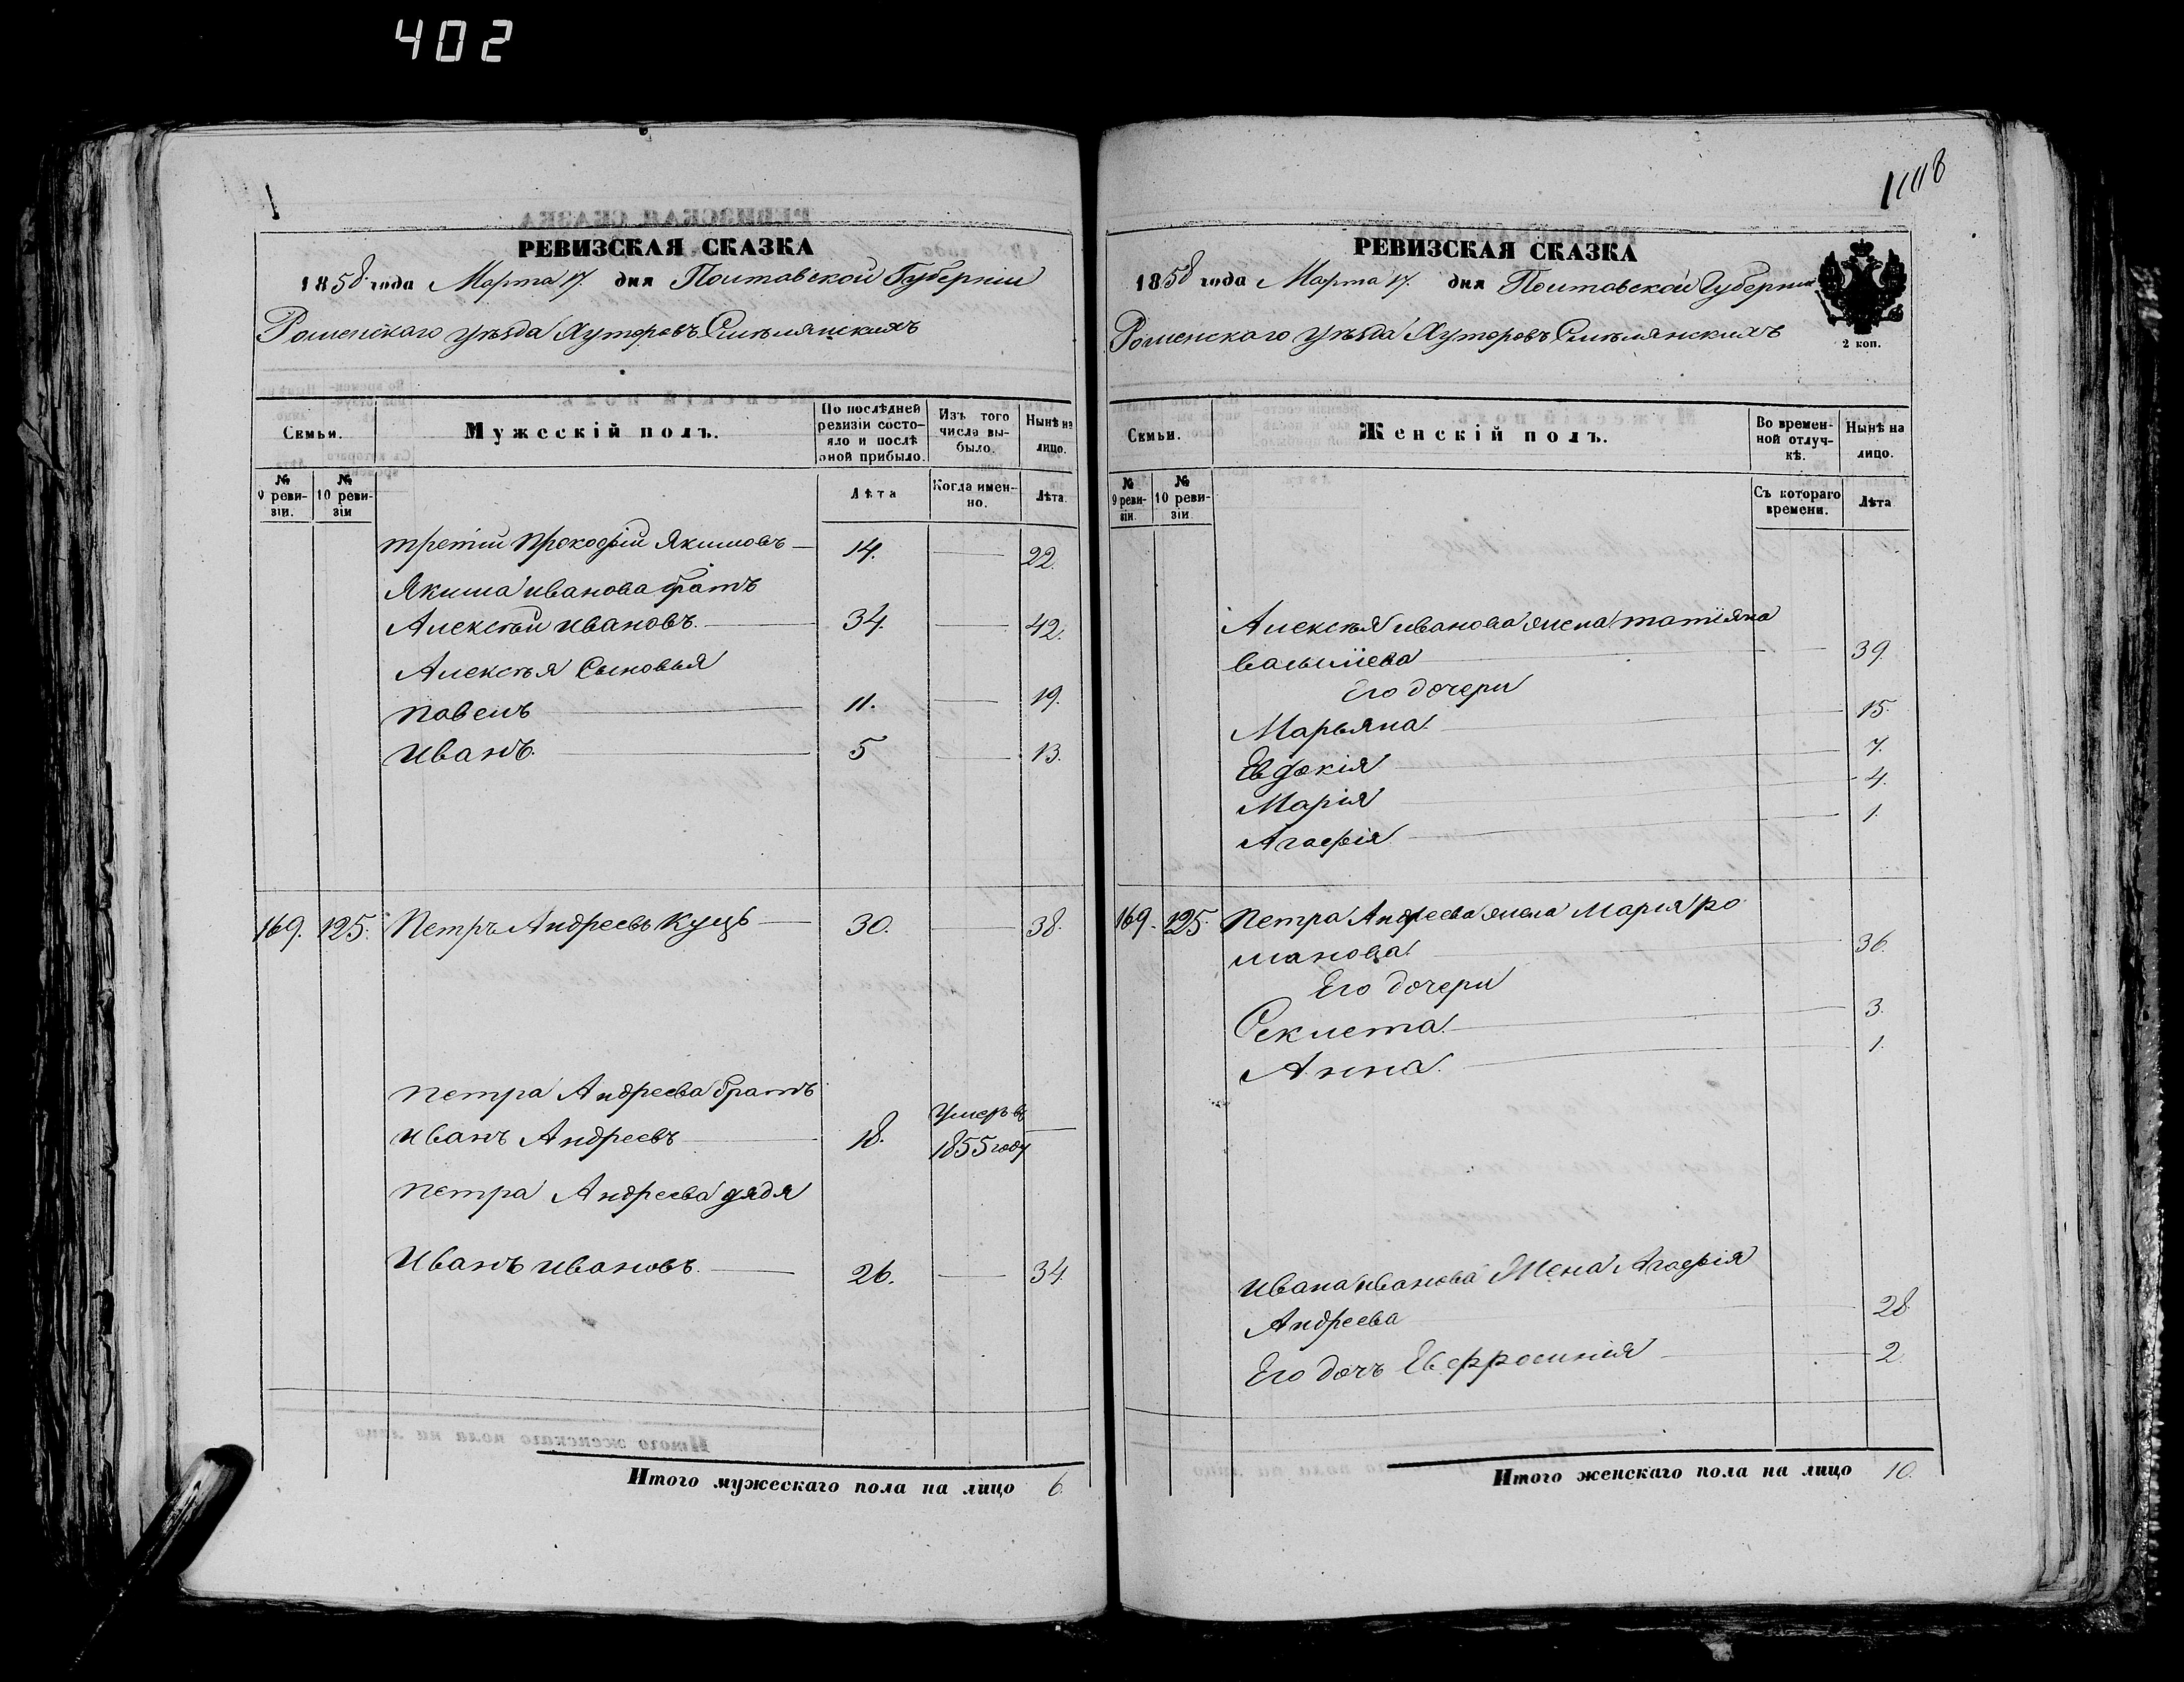 402
РЕВИЗСКАЯ СКАЗКА
1858 года Марта 17. дня Полтавской Губерніи
Роменскаго уѣзда Хуторовъ Смѣлянскихъ
Семьи.
Мужескій полъ.
По послѣдней ревизіи состояло и послѣ оной прибыло.
Изъ того числа выбыло.
Нынѣ на лицо.
№ 9 ревизіи.
№ 10 ревизіи
Лѣта
Когда именно.
Лѣта.
третій Прокофій Якимовъ 14. 22.
Якима Иванова братъ
Алексѣй Ивановъ. 34. 42.
Алексѣя Сыновья
Павелъ 11. 19.
Иванъ. 5 13.
169. 125. Петръ Андреевъ Куцъ 30. 38.
Петра Андреева братъ
Иванъ Андреевъ 18. Умеръ въ 1855 году
Петра Андреева дядя
Иванъ Ивановъ. 26. 34.
Итого мужескаго пола на лицо 6.
РЕВИЗСКАЯ СКАЗКА
1858 года Марта 17. дня Полтавской Губерніи
Роменскаго уѣзда Хуторовъ Смѣлянскихъ
2 коп.
Семьи.
Женскій полъ.
Во временной отлучкѣ.
Нынѣ на лицо.
№ 9 ревизіи.
№ 10 ревизіи
Съ котораго времени.
Лѣта
Алексѣя Иванова жена Татіяна
39.
Его дочери
Марьяна. 15.
Евдокія 7.
Марія 4.
Агафія 1.
169. 125. Петра Андреева жена Марія Ро
манова. 36.
Его дочери
Феклета. 3.
Анна. 1.
Ивана Иванова Жена Агафія
Андреева 28.
Его дочь Евфросинія 2.
Итого женскаго пола на лицо 10.